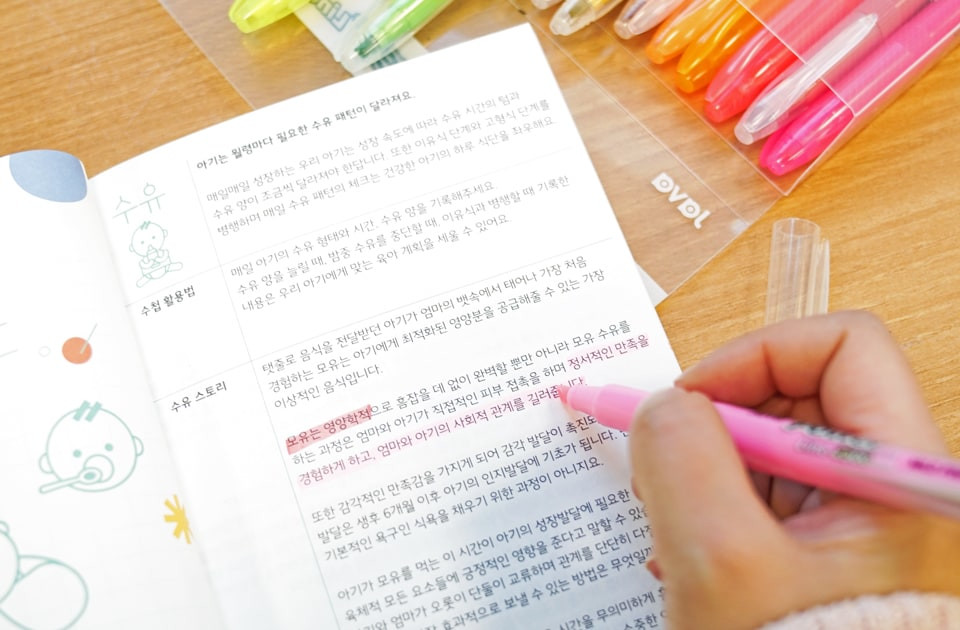 아기는 월령마다 필요한 수유 패턴이 달라져요.
매일매일 성장하는 우리 아기는 성장 속도에 따라 수유 시간의 텀과
수유 양이 조금씩 달라져야 한답니다. 또한 이유식 단계와 고형식 단계를
병행하며 매일 수유 패턴의 체크는 건강한 아기의 하루 식단을 좌우해요
수유
수첩 활용법
매일 아기의 수유 형태와 시간, 수유 양을 기록해주세요.
수유 양을 늘릴 때, 밤중 수유를 중단할 때, 이유식과 병행할 때 기록한
내용은 우리 아기에게 맞는 육아 계획을 세울 수 있어요.
수유 스토리
탯줄로 음식을 전달받던 아기가 엄마의 뱃속에서 태어나 가장 처음
경험하는 모유는 아기에게 최적화된 영양분을 공급해줄 수 있는 가장
이상적인 음식입니다.
모유는 영양학적으로 흠잡을 데 없이 완벽할 뿐만 아니라 모유 수유를
하는 과정은 엄마와 아기가 직접적인 피부 접촉을 하며 정서적인 만족을
경험하게 하고, 엄마와 아기의 사회적 관계를 길러줍니다.
또한 감각적인 만족감을 가지게 되어 감각 발달이 촉진되
발달은 생후 6개월 이후 아기의 인지발달에 기초가 됩니다.
기본적인 욕구인 식욕을 채우기 위한 과정이 아니지요.
아기가 모유를 먹는 이 시간이 아기의 성장발달에 필요한
육체적 모든 요소들에 긍정적인 영향을 준다고 말할 수 있
엄마가 오롯이 단둘이 교류하며 관계를 단단히
효과적으로 보낼 수 있는 방법은 무엇일
시간을 무의미하게
DVDL